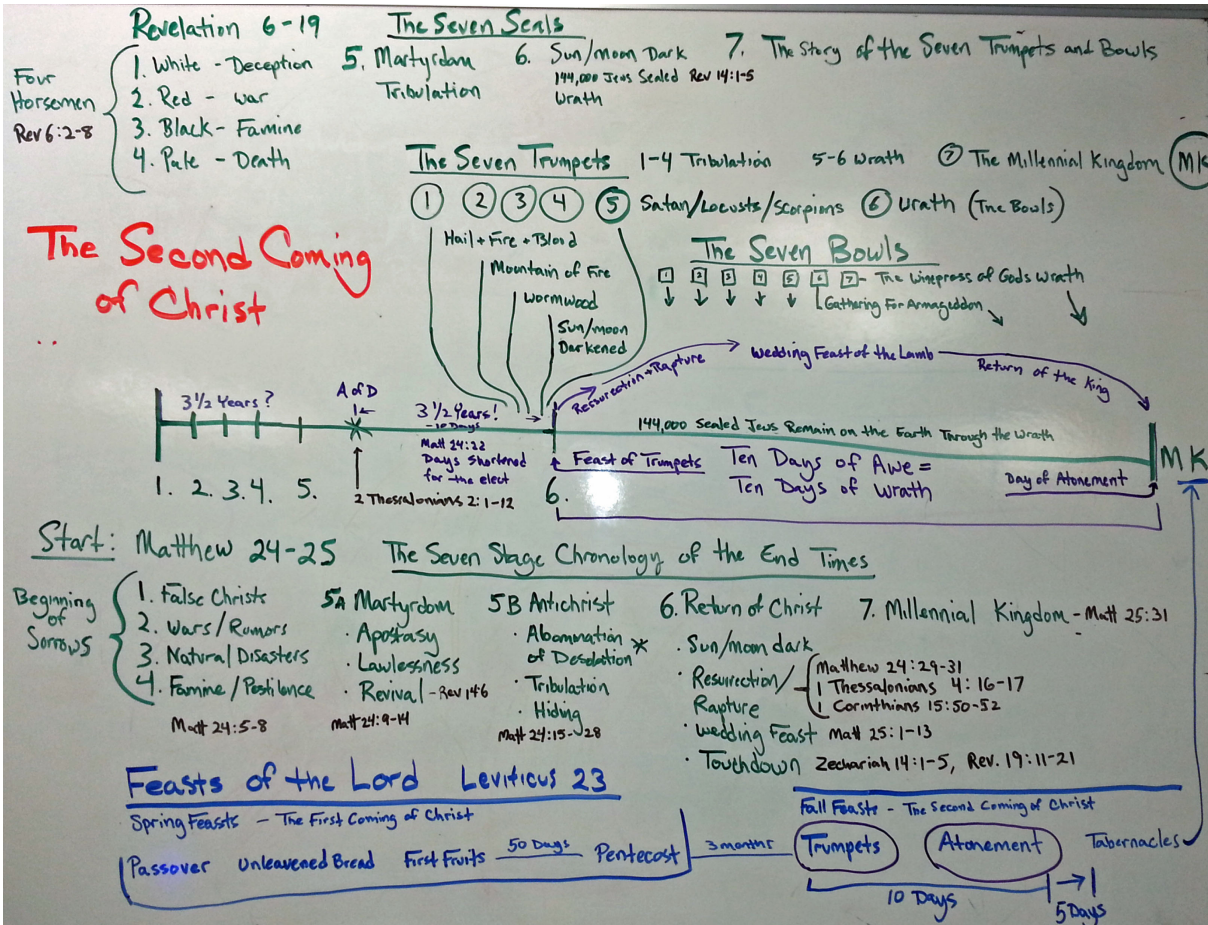 Revelation 6-19
Four
Horsemen
Rev 6:2-8
1. White - Deception
2. Red - war
3. Black - Famine
4. Pale - Death
The Seven Seals
5. Martyrdom
Tribulation
6. Sun/moon Dark
144,000 Jews Sealed Rev 14:1-5
Wrath
7. The Story of the Seven Trumpets and Bowls
The Seven Trumpets 1-4 Tribulation 5-6 Wrath ⑦ The Millennial Kingdom MK
① ② ③ ④ ⑤ Satan/Locusts/Scorpions ⑥ Wrath (The Bowls)
Hail + Fire + Blood
Mountain of Fire
Wormwood
Sun/moon
Darkened
The Second Coming
of Christ
The Seven Bowls
1 2 3 4 5 6 7 - The Winepress of Gods Wrath
Gathering For Armageddon
Resurrection + Rapture
Wedding Feast of the Lamb
Return of the King
3 1/2 Years?
A of D
3 1/2 Years!
- 10 Days
Matt 24:22
Days Shortened
for the elect
144,000 Sealed Jews Remain on the Earth Through the Wrath
Feast of Trumpets
Ten Days of Awe =
Ten Days of Wrath
Day of Atonement
MK
1. 2. 3. 4. 5.
2 Thessalonians 2:1-12
6.
Start: Matthew 24-25
The Seven Stage Chronology of the End Times
Beginning
of
Sorrows
1. False Christs
2. Wars/Rumors
3. Natural Disasters
4. Famine/Pestilence
Matt 24:5-8
5A Martyrdom
· Apostasy
· Lawlessness
· Revival - Rev 14:6
Matt 24:9-14
5B Antichrist
· Abomination *
of Desolation
· Tribulation
· Hiding
Matt 24:15-28
6. Return of Christ
· Sun/moon dark
· Resurrection/
Rapture
Matthew 24:29-31
1 Thessalonians 4:16-17
1 Corinthians 15:50-52
· Wedding Feast Matt 25:1-13
· Touchdown Zechariah 14:1-5, Rev. 19:11-21
7. Millennial Kingdom - Matt 25:31
Feasts of the Lord Leviticus 23
Spring Feasts - The First Coming of Christ
Passover Unleavened Bread First Fruits 50 Days Pentecost
3 months
Fall Feasts - The Second Coming of Christ
Trumpets Atonement Tabernacles
10 Days
5 Days